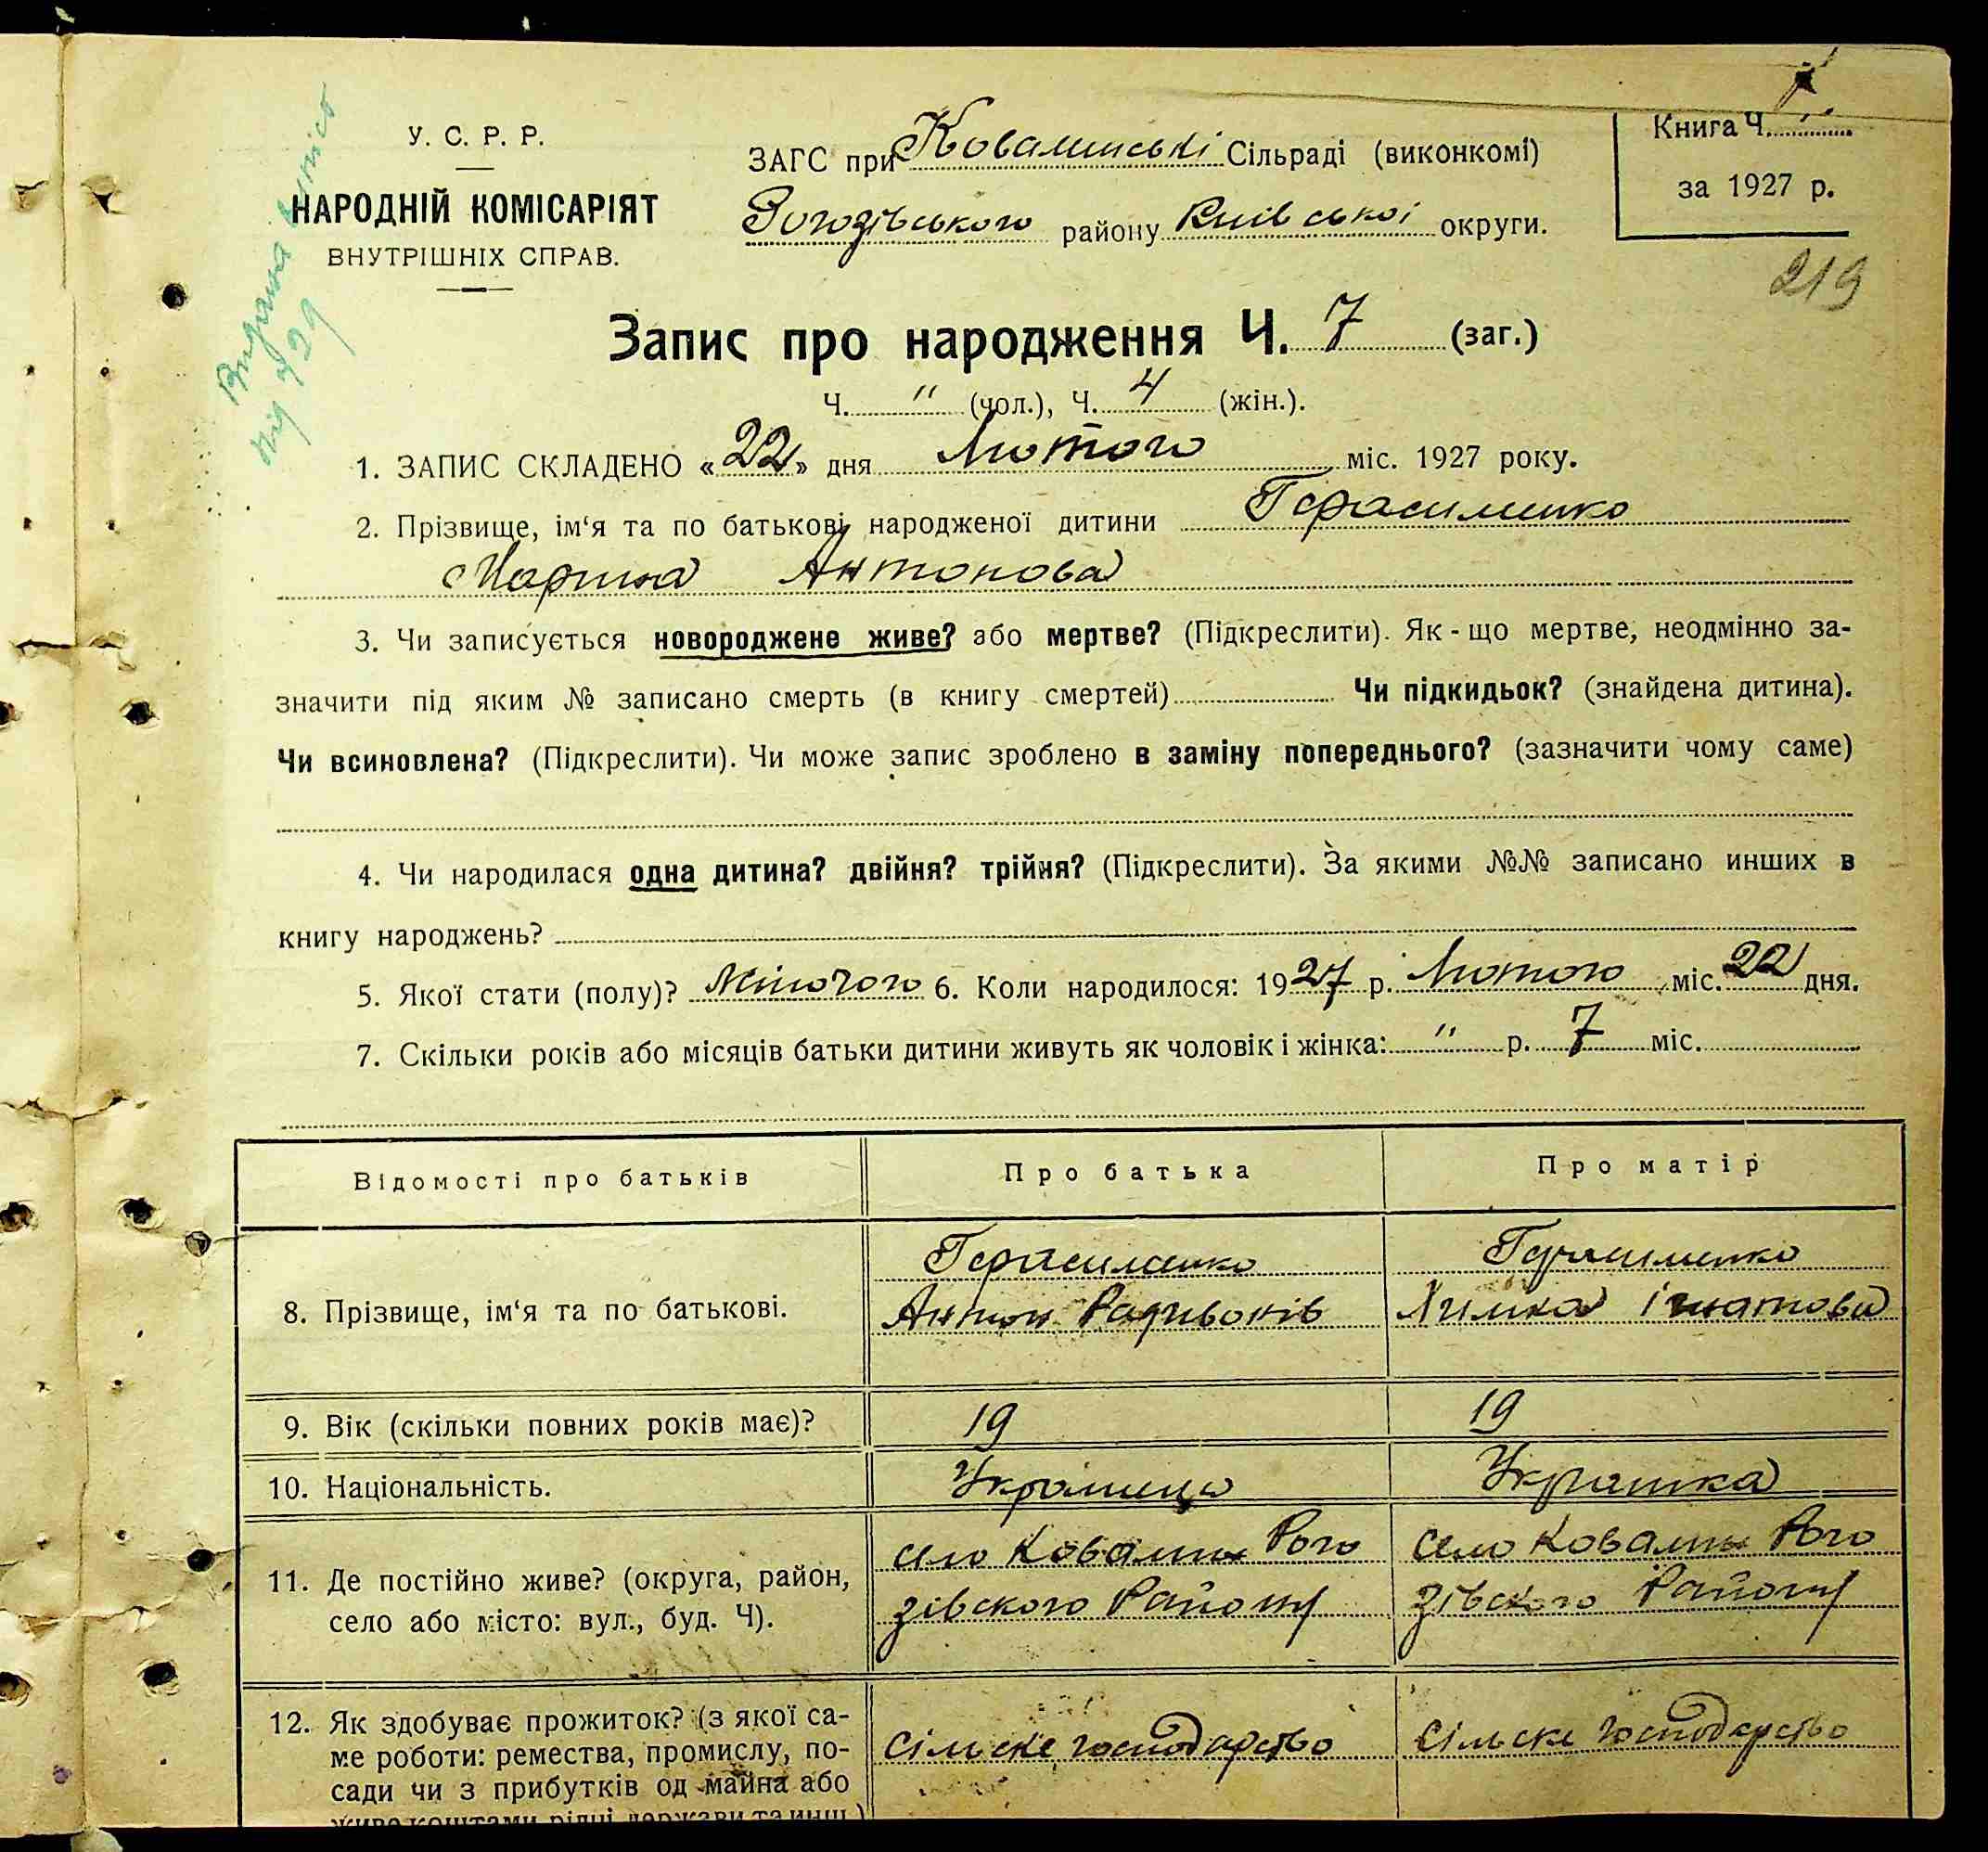 Видана випись
під 29
У. С. Р. Р.
НАРОДНІЙ КОМІСАРІЯТ
ВНУТРІШНІХ СПРАВ.
ЗАГС при Ковалинські Сільраді (виконкомі)
Рогозівського району Київської округи.
Книга Ч.
за 1927 р.
219
Запис про народження Ч. 7 (заг.)
Ч. " (чол.), Ч. 4 (жін.).
1. ЗАПИС СКЛАДЕНО « 22 » дня Лютого міс. 1927 року.
2. Прізвище, ім‘я та по батькові народженої дитини Герасименко
Марина Антонова
3. Чи записується новороджене живе? або мертве? (Підкреслити). Як - що мертве, неодмінно за-
значити під яким № записано смерть (в книгу смертей) Чи підкидьок? (знайдена дитина).
Чи всиновлена? (Підкреслити). Чи може запис зроблено в заміну попереднього? (зазначити чому саме)
4. Чи народилася одна дитина? двійня? трійня? (Підкреслити). За якими №№ записано инших в
книгу народжень?
5. Якої стати (полу)? Жіночого 6. Коли народилося: 1927 р. Лютого міс. 22 дня.
7. Скільки років або місяців батьки дитини живуть як чоловік і жінка: " р. 7 міс.
Відомості про батьків Про батька Про матір
8. Прізвище, ім‘я та по батькові.
Герасименко
Антон Радивонів
Герасименко
Химка Ігнатова
9. Вік (скільки повних років має)? 19 19
10. Національність. Украінець Украінка
11. Де постійно живе? (округа, район,
село або місто: вул., буд. Ч).
село Ковалин Рого
зівского Району
село Ковалин Рого
зівского Району
12. Як здобуває прожиток? (з якої са-
ме роботи: ремества, промислу, по-
сади чи з прибутків од майна або
живе коштами рідні держави та инш.)
сільске господарство
сільске господарство